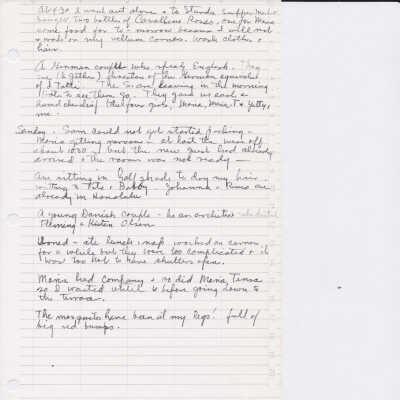 At 6:30 I went out alone & to Standa Supper Market
bought two bottles of Cavallieri Rosso, one for Maria
some food for to-morrow because I will not
a wash on my return comes. Wash clothes &
hair.
A German couple who speak English. They
are (& father) directors of the German equivalent
of I Tatti. The Swans leaving in the morning
I hate to see them go. They gave us each a
hand chief the four girls, Maria, Maria T & Getty,
me.
Sunday. Swan could not get started packing -
Maria getting nervous - at last they were off
about 10:00 - but the new guest had already
arrived & the room was not ready -
Am sitting in half shade to dry my hair
writing to Tita & Bobby. Johanna & Russ are
already in Honolulu
A young Danish couple - he an architect
Flemming & Kirsten Olsen
Ironed - ate lunch & nap worked on canvas
for a while but they were too complicated & it
was too hot to have shutters open.
Maria had company & so did Maria Teresa
so I waited until before going down to
the terrace.
The mosquitos have been at my legs! full of
big red bumps.